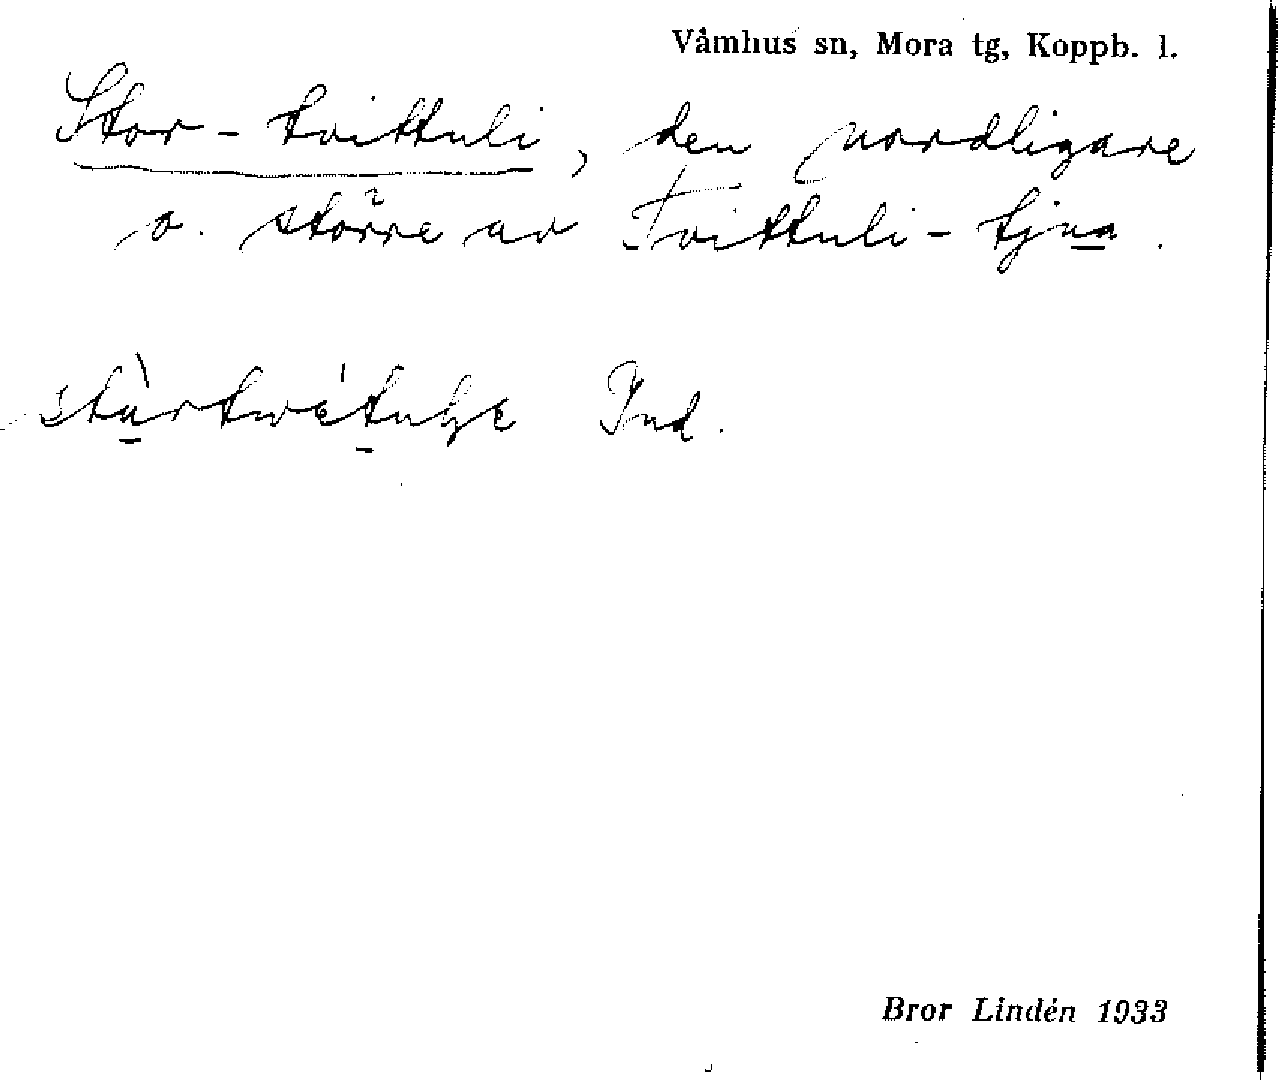 Våmhus sn, Mora tg, Koppb. l.
Stor-tvittuli, den nordligare
o. större av Tvittuli-tjna.
Ind.
Bror Lindén 1933